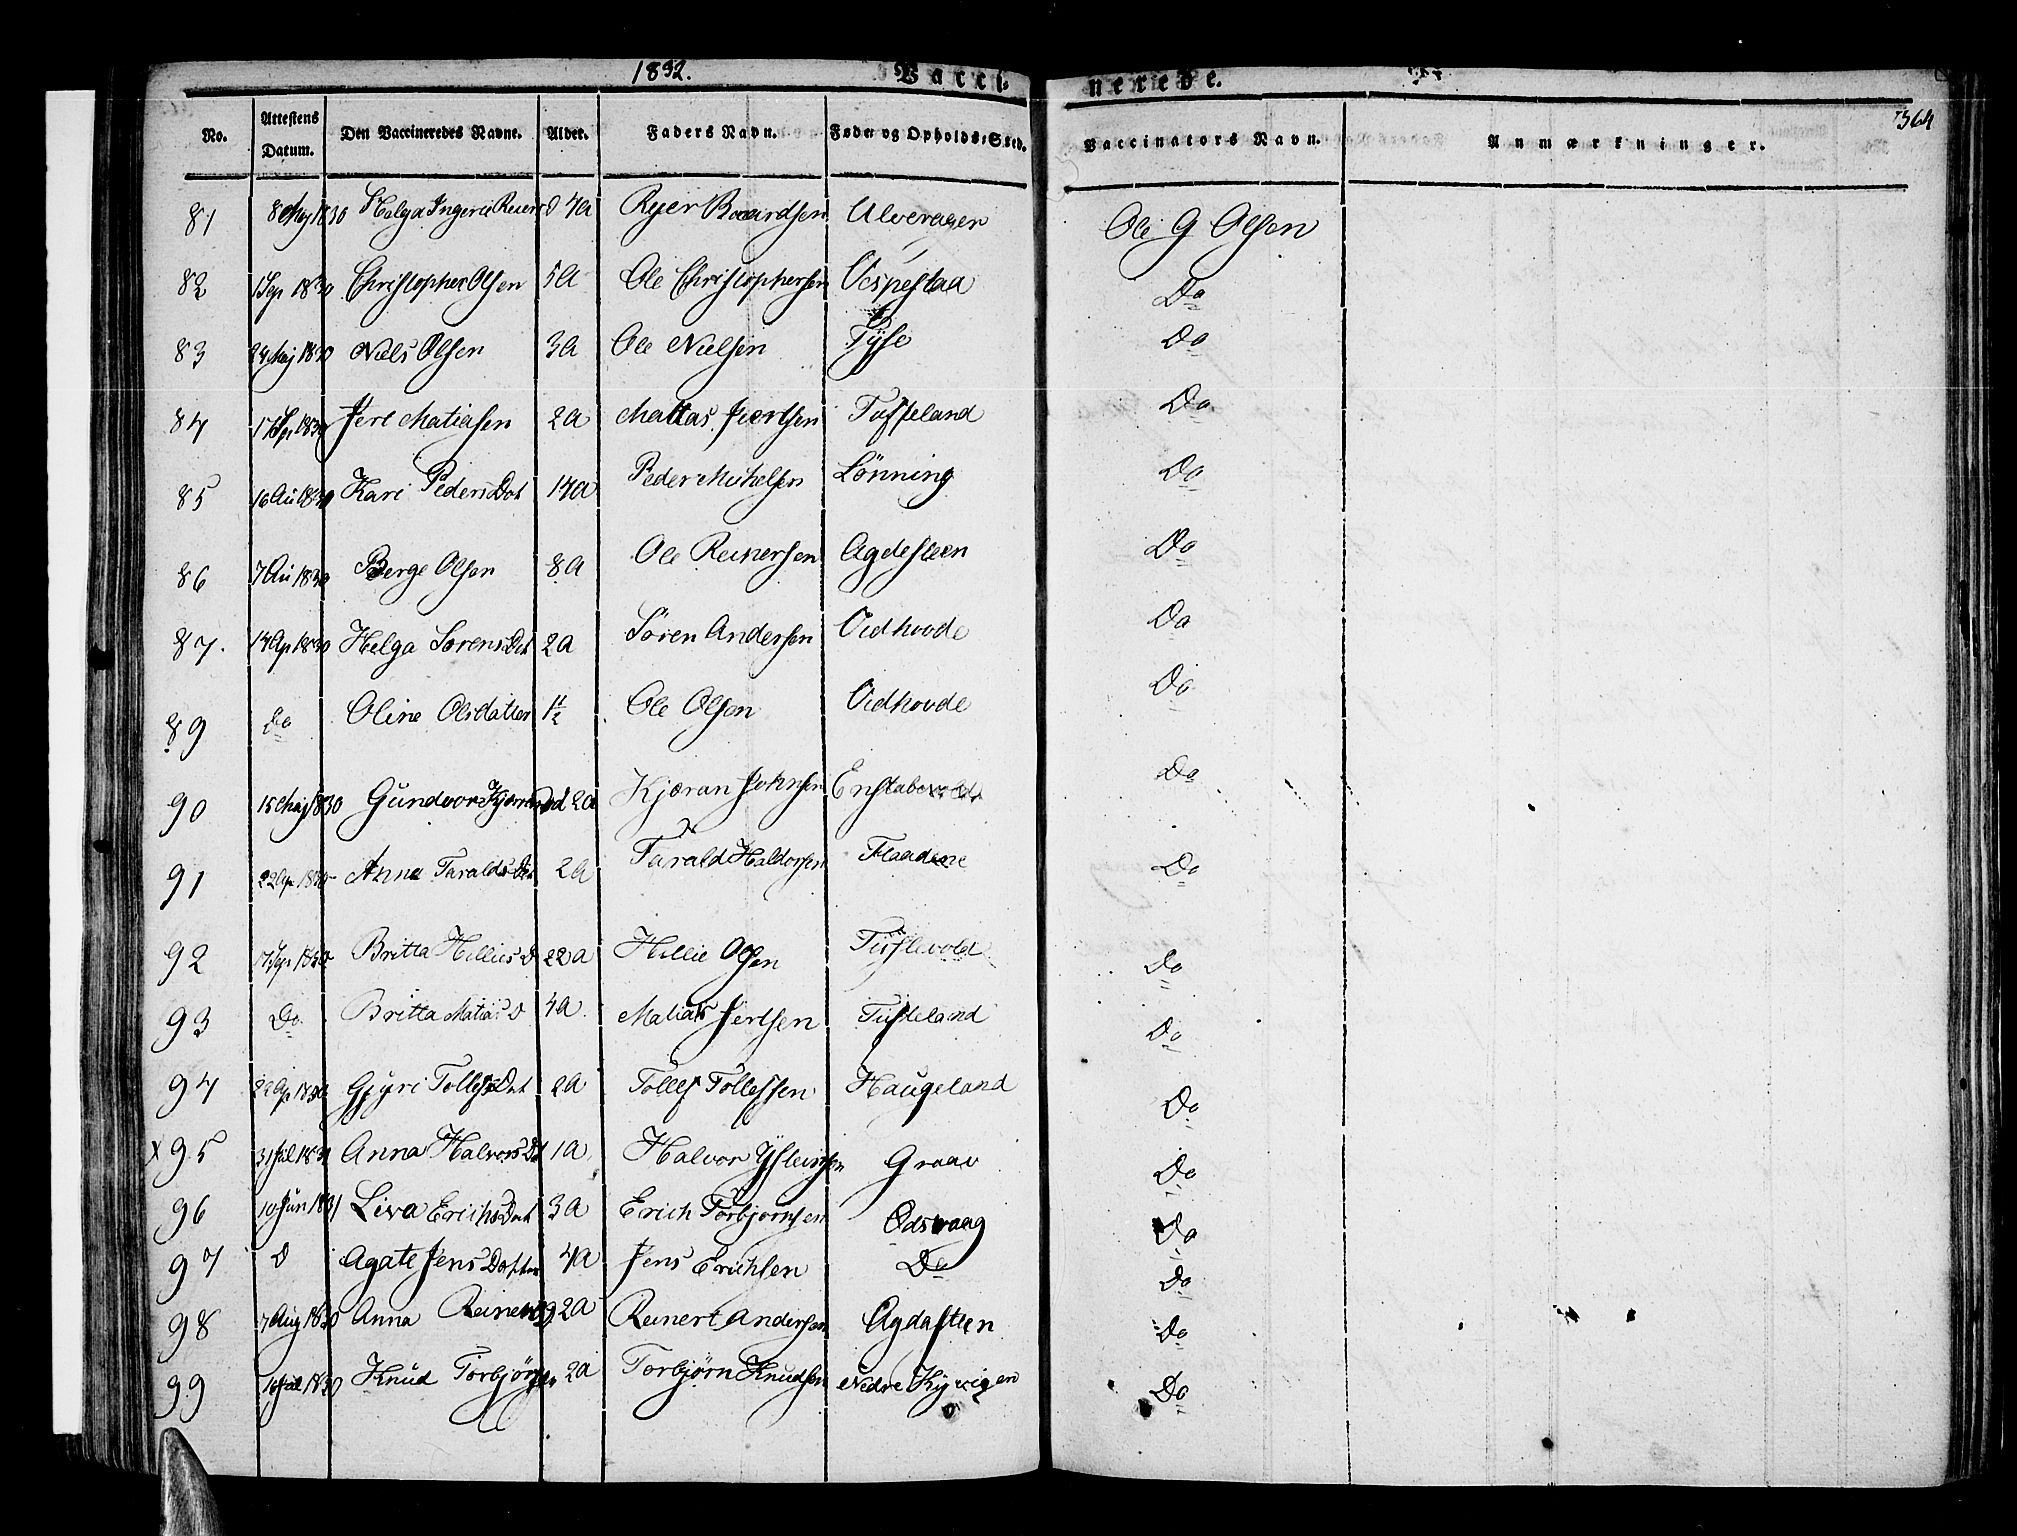 1832. Vacci- nerede.
364
No. Attestens Datum. Den Vaccineredes Navne. Alder. Faders Navn. Føde- og Opholds-Sted. Vaccinators Navn. Anmærkninger.
81 8 Maj 1830 Helga Ingerie Reiersd 7a Ryer Baardsen Ulveragen Ole G Olsen
82 1 Sep 1830 Christopher Olsen 5a Ole Christophersen Vespestaa Do
83 24 Maj 1830 Niels Olsen 3a Ole Nielsen Tyse Do
84 17 Sp 1830 Jert Matiasen 2a Mattas Jertsen Tufteland Do
85 16 Au 1830 Kari Peders Dat 14a Peder Mikelsen Lønning Do
86 7 Au 1830 Berge Olsen 8a Ole Reinersen Agdesteen Do
87. 14 Ap 1830 Helga Sørens Dat 2a Sören Andersen Vidhovde Do
89 Do Oline Olsdatter 1 1/2 Ole Olsen Vidhovde Do
90 15 Maj 1830 Gundvor 2a Kjøran Johnsen Do
91 22 Ap 1830 Anna Taralds Dat 2a Tarald Haldorsen Flaadene Do
92 17 Sp 1830 Britta Hillies D 22a Hellie Olsen Tuftevold Do
93 Do Britta Matias D 4a Matias Jertsen Tufteland Do
94 22 Ap 1830 Gjyri Tollefs Dat 2a Tollef Tollefsen Haugeland Do
x 95 31 Jul 1831 Anna Halvors D 1a Halvor Graav Do
96 10 Jun 1831 Liva Erichs Dat 3a Erich Torbjørnsen Odsvaag Do
97 D Agate Jens Datter 4a Jens Erichsen Do Do
98 7 Aug 1830 Anna 2a Reinert Andersen Agdasteen Do
99 Jul 1830 Knud Torbjørsen 2a Torbjørn Knudsen Nedre Kyvigen Do